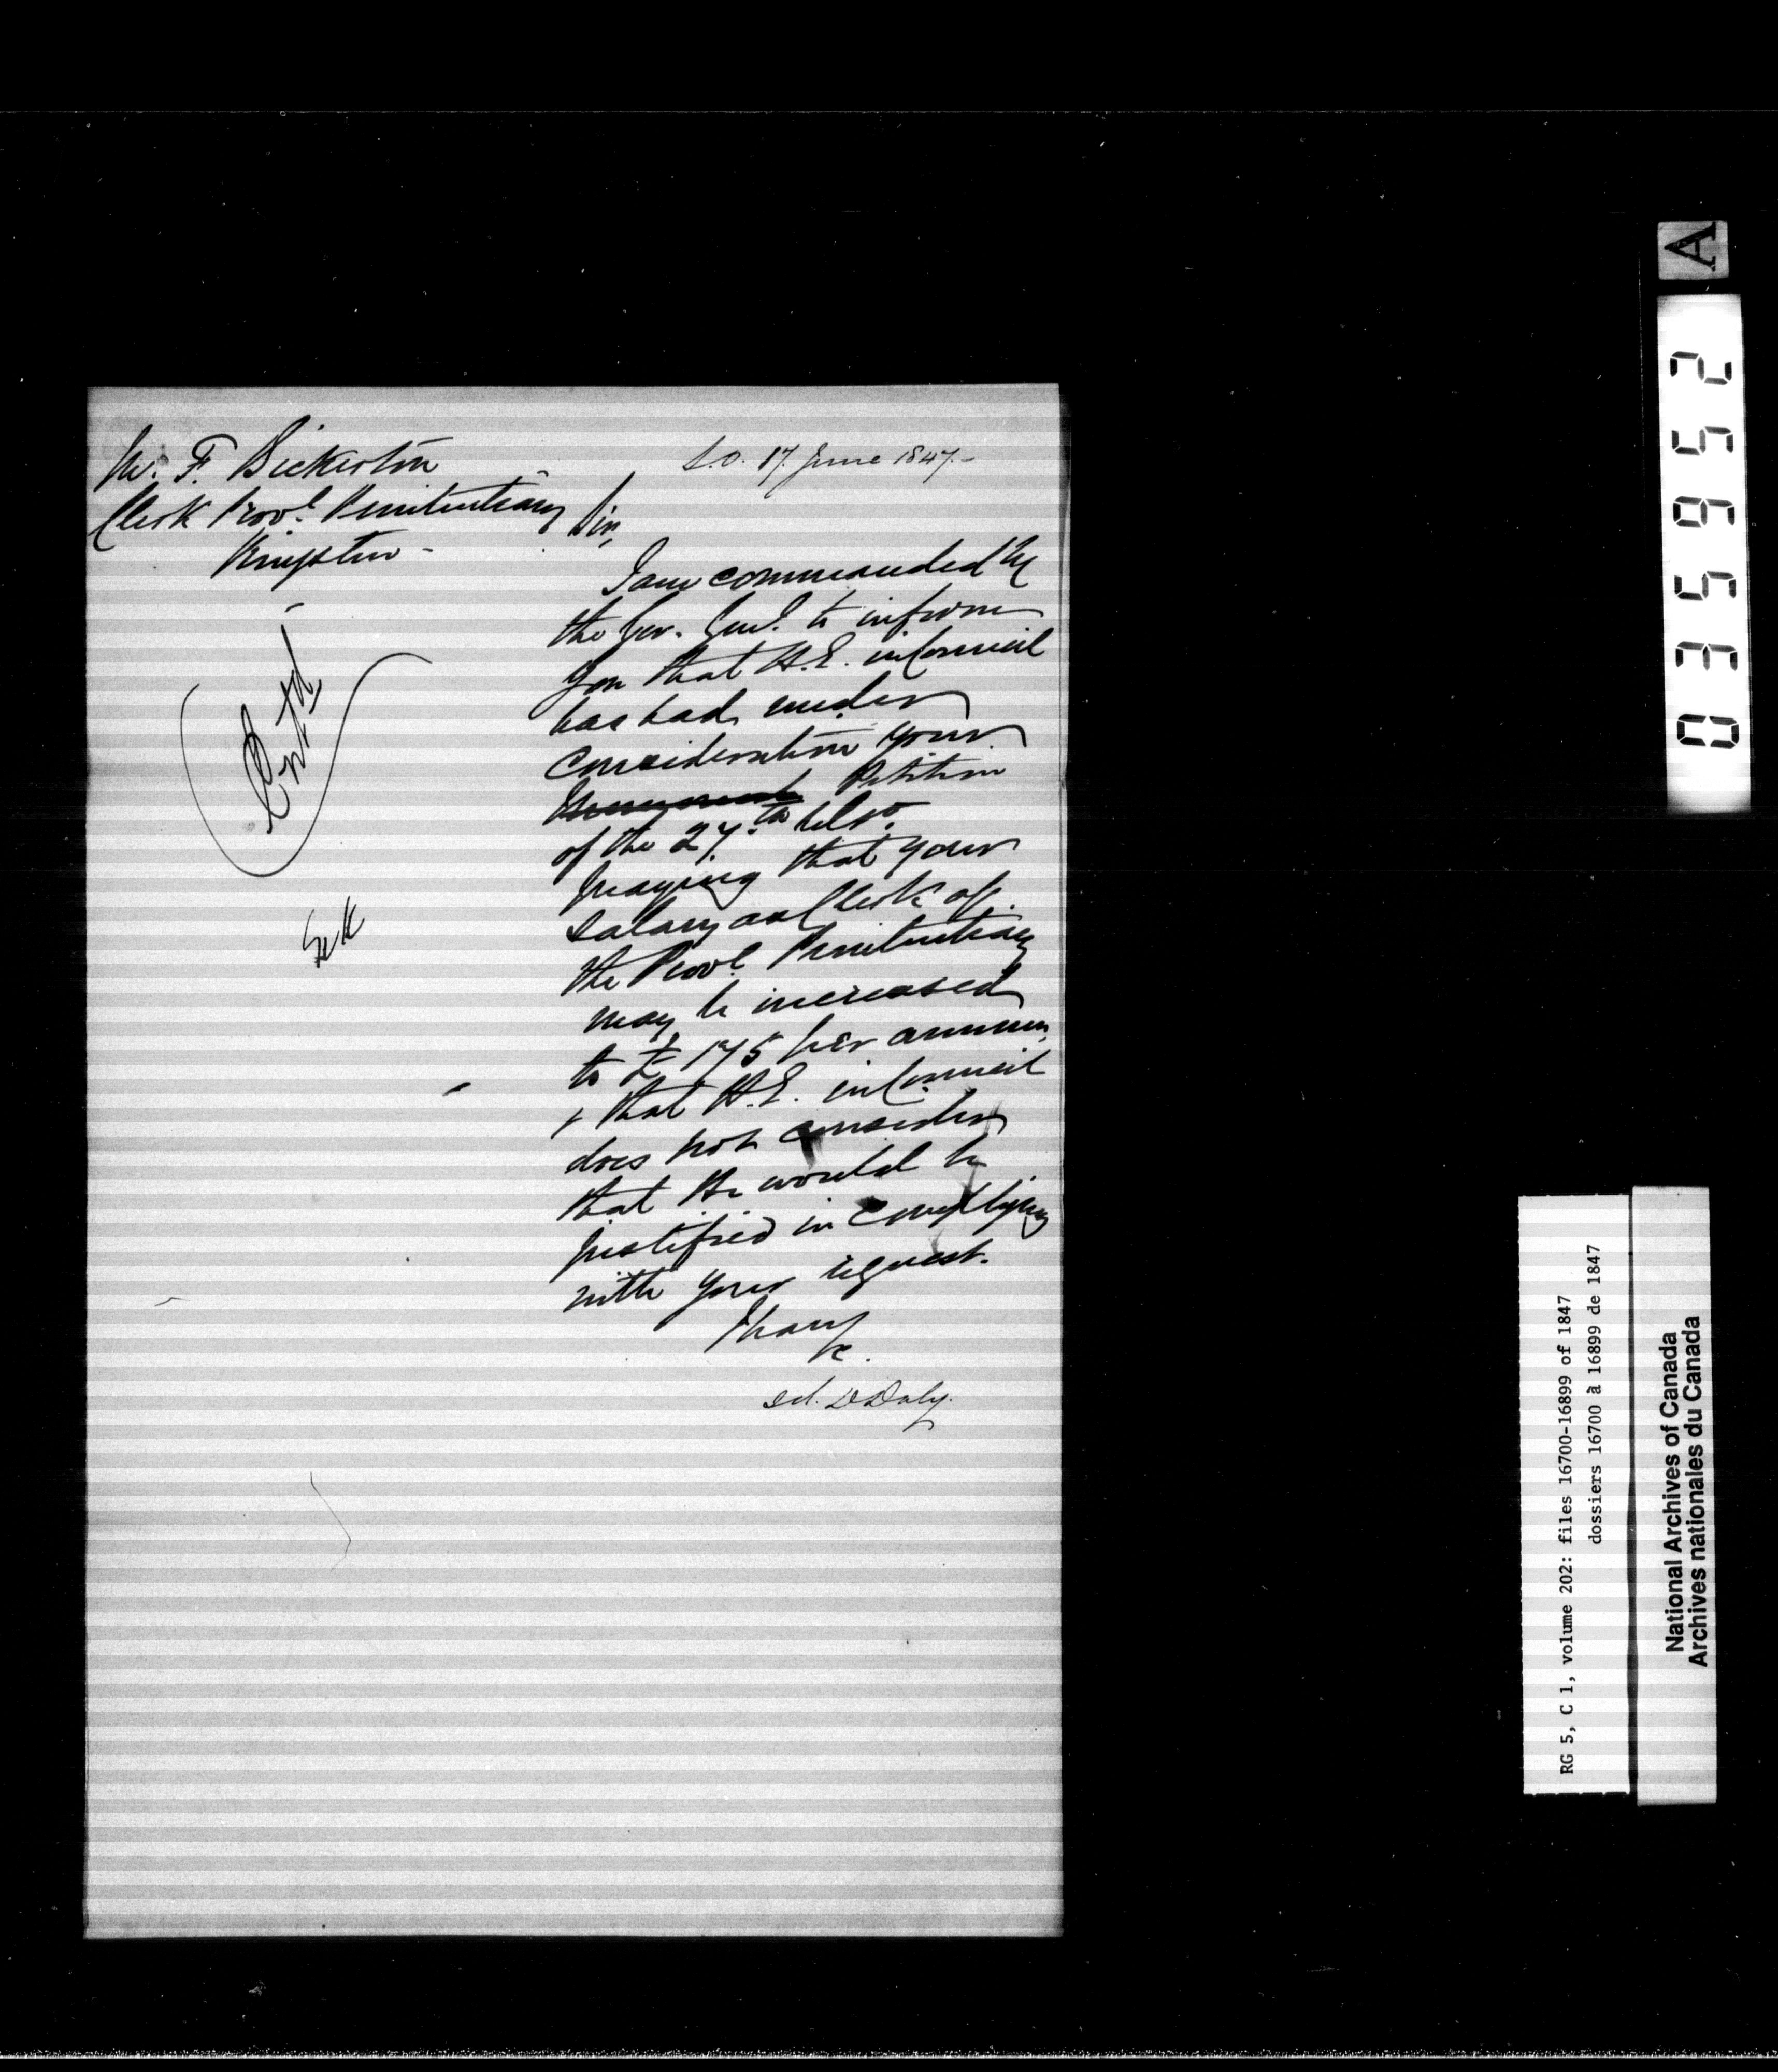 Mr. F. Bickerton
Clerk Provl. Penitentiary
Kingston -
S.O. 17. June 1847.-
Sir,
I am commanded by
the Gov. Genl. to inform
you that H.E. in Council
has had under
consideration your
Petition
of the 27.th Ulto.
praying that your
salary as Clerk of
the Provl. Penitentiary
may be increased
to £175 per annum,
& that H.E. in Council
does not consider
that He would be
justified in complying
with your request.
I have
&c.
sd. D Daly.
Entd
A
035952
RG 5, C 1, volume 202: files 16700-16899 of 1847
dossiers 16700 à 16899 de 1847
National Archives of Canada
Archives nationales du Canada